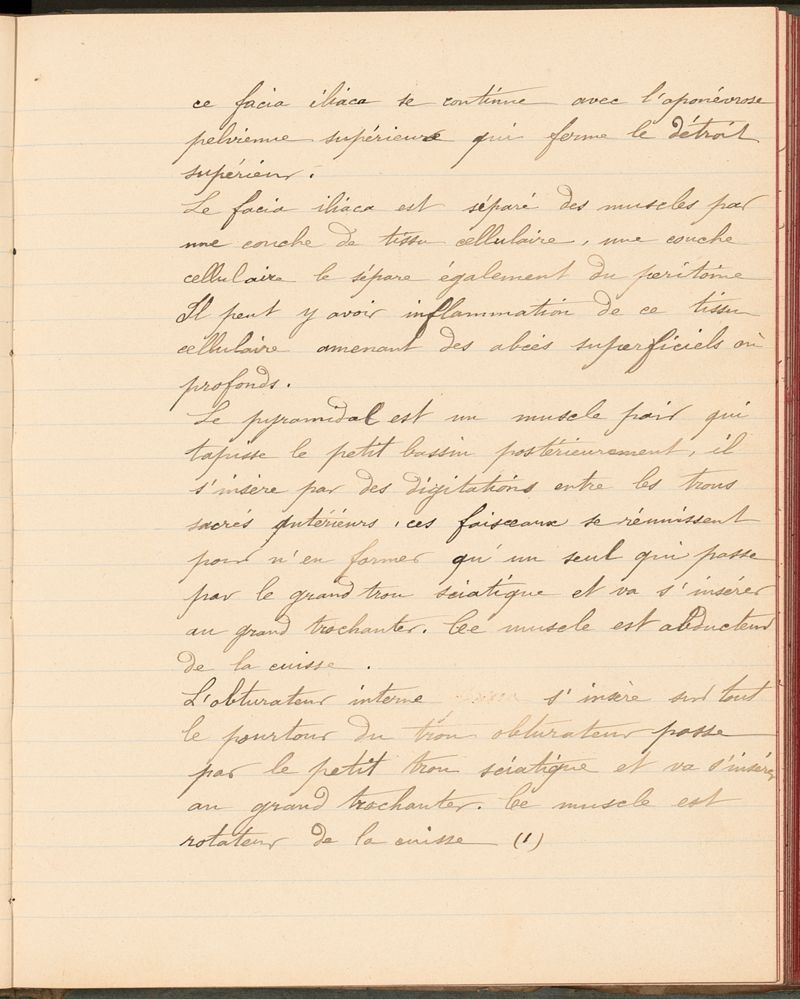 ce facia iliaca se continue avec l'aponévrose
pelvienne supérieure qui forme le détroit
supérieur.
Le facia iliaca est séparé des muscles par
une couche de tissu cellulaire, une couche
cellulaire le sépare également du péritoine
Il peut y avoir inflammation de ce tissu
cellulaire amenant des abcès superficiels ou
profonds.
Le pyramidal est un muscle pair qui
tapisse le petit bassin postérieurement, il
s'insère par des digitations entre les trous
sacrés antérieurs, ces faisceaux se réunissent
pour n'en former qu'un seul qui passe
par le grand trou sciatique et va s'insérer
au grand trochanter. Ce muscle est abducteur
de la cuisse.
L'obturateur interne s'insère sur tout
le pourtour du trou obturateur passe
par le petit trou sciatique et va s'insérer
au grand trochanter. Ce muscle est
rotateur de la cuisse (1)